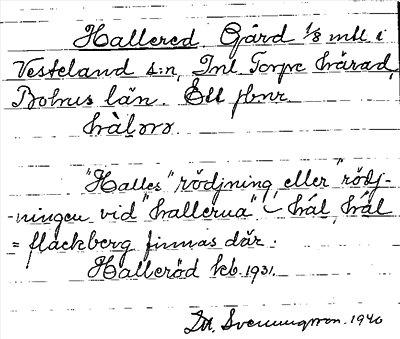 Hallered. Gård 1/8 mtl i
Vesteland s:n, Inl. Torpe härad,
Bohus län. Ett fbnr.
hàlorö.
"Halles" rödjning eller "rödj-
-ningen vid "hallerna" hál, hál
= flackberg finnas där.
Halleröd kb. 1931.
Svenungsson. 1940